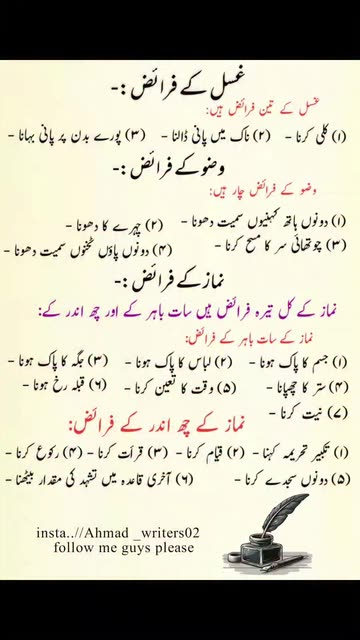 غسل کے فرائض :-
غسل کے تین فرائض ہیں:
(۱) کلی کرنا - (۲) ناک میں پانی ڈالنا - (۳) پورے بدن پر پانی بہانا -
وضو کے فرائض :-
وضو کے فرائض چار ہیں:
(۱) دونوں ہاتھ کہنیوں سمیت دھونا - (۲) چہرے کا دھونا -
(۳) چوتھائی سر کا مسح کرنا - (۴) دونوں پاؤں ٹخنوں سمیت دھونا -
نماز کے فرائض :-
نماز کے کل تیرہ فرائض ہیں سات باہر کے اور چھ اندر کے:
نماز کے سات باہر کے فرائض:
(۱) جسم کا پاک ہونا - (۲) لباس کا پاک ہونا - (۳) جگہ کا پاک ہونا -
(۴) ستر کا چھپانا - (۵) وقت کا تعین کرنا - (۶) قبلہ رخ ہونا -
(۷) نیت کرنا -
نماز کے چھ اندر کے فرائض:
(۱) تکبیر تحریمہ کہنا - (۲) قیام کرنا - (۳) قرأت کرنا - (۴) رکوع کرنا -
(۵) دونوں سجدے کرنا - (۶) آخری قاعدہ میں تشہد کی مقدار بیٹھنا -
insta..//Ahmad _writers02
follow me guys please